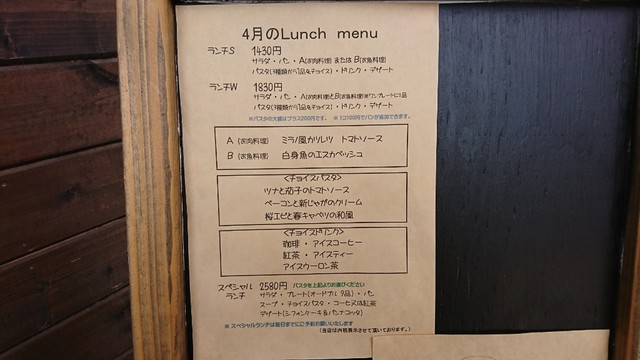 4月のLunch menu
ランチS 1430円
サラダ・パン・A(お肉料理) または B(お魚料理)
パスタ(3種類から1品をチョイス)・ドリンク・デザート
ランチW 1830円
サラダ・パン・A(お肉料理)とB(お魚料理)※ワンプレートに2品
パスタ(3種類から1品をチョイス)・ドリンク・デザート
※パスタの大盛はプラス200円です。 ※100円でパンが追加できます。
A (お肉料理) ミラノ風カツレツ トマトソース
B (お魚料理) 白身魚のエスカベッシュ
<チョイスパスタ>
ツナと茄子のトマトソース
ベーコンと新じゃがのクリーム
桜エビと春キャベツの和風
<チョイスドリンク>
珈琲・アイスコーヒー
紅茶・アイスティー
アイスウーロン茶
スペシャル 2580円 パスタを上記よりお選びください
ランチ サラダ・プレート(オードブル 9品)・パン
スープ・チョイスパスタ・コーヒ又は紅茶
デザート(シフォンケーキ&パンナコッタ)
※ スペシャルランチは前日までにご予約お願いいたします
(当店は内税表示させて頂いております。)